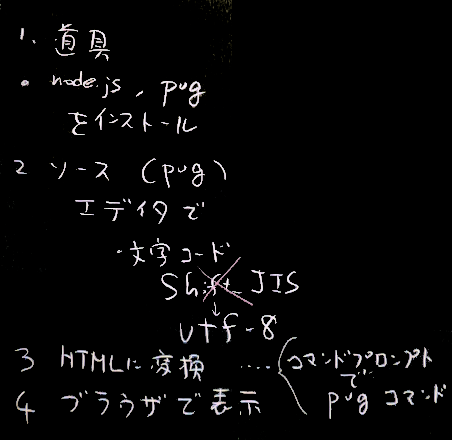 1. 道具
・node.js, pug
をインストール
2 ソース (pug)
エディタで
・文字コード
Shift-JIS
↓
utf-8
3 HTMLに変換 ‥‥ コマンドプロンプト
で
pug コマンド
4 ブラウザで表示